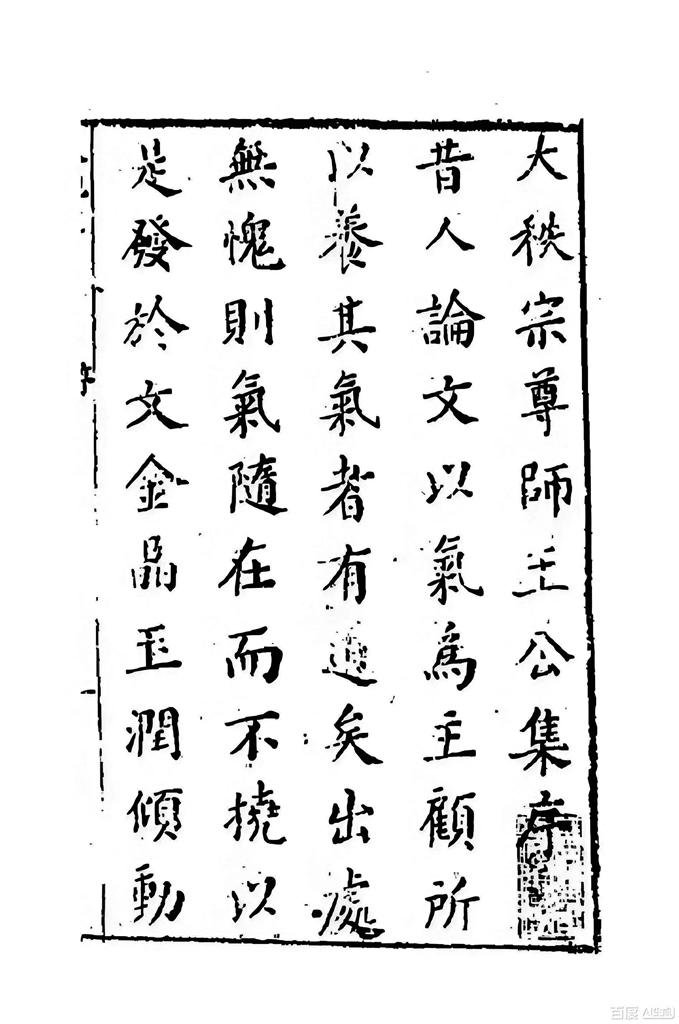 大秩宗尊師王公集序
昔人論文以氣爲主顧所
以養其氣者有道矣出處
無愧則氣隨在而不撓以
是發於文金晶玉潤傾動
序
一
百度 AI生成